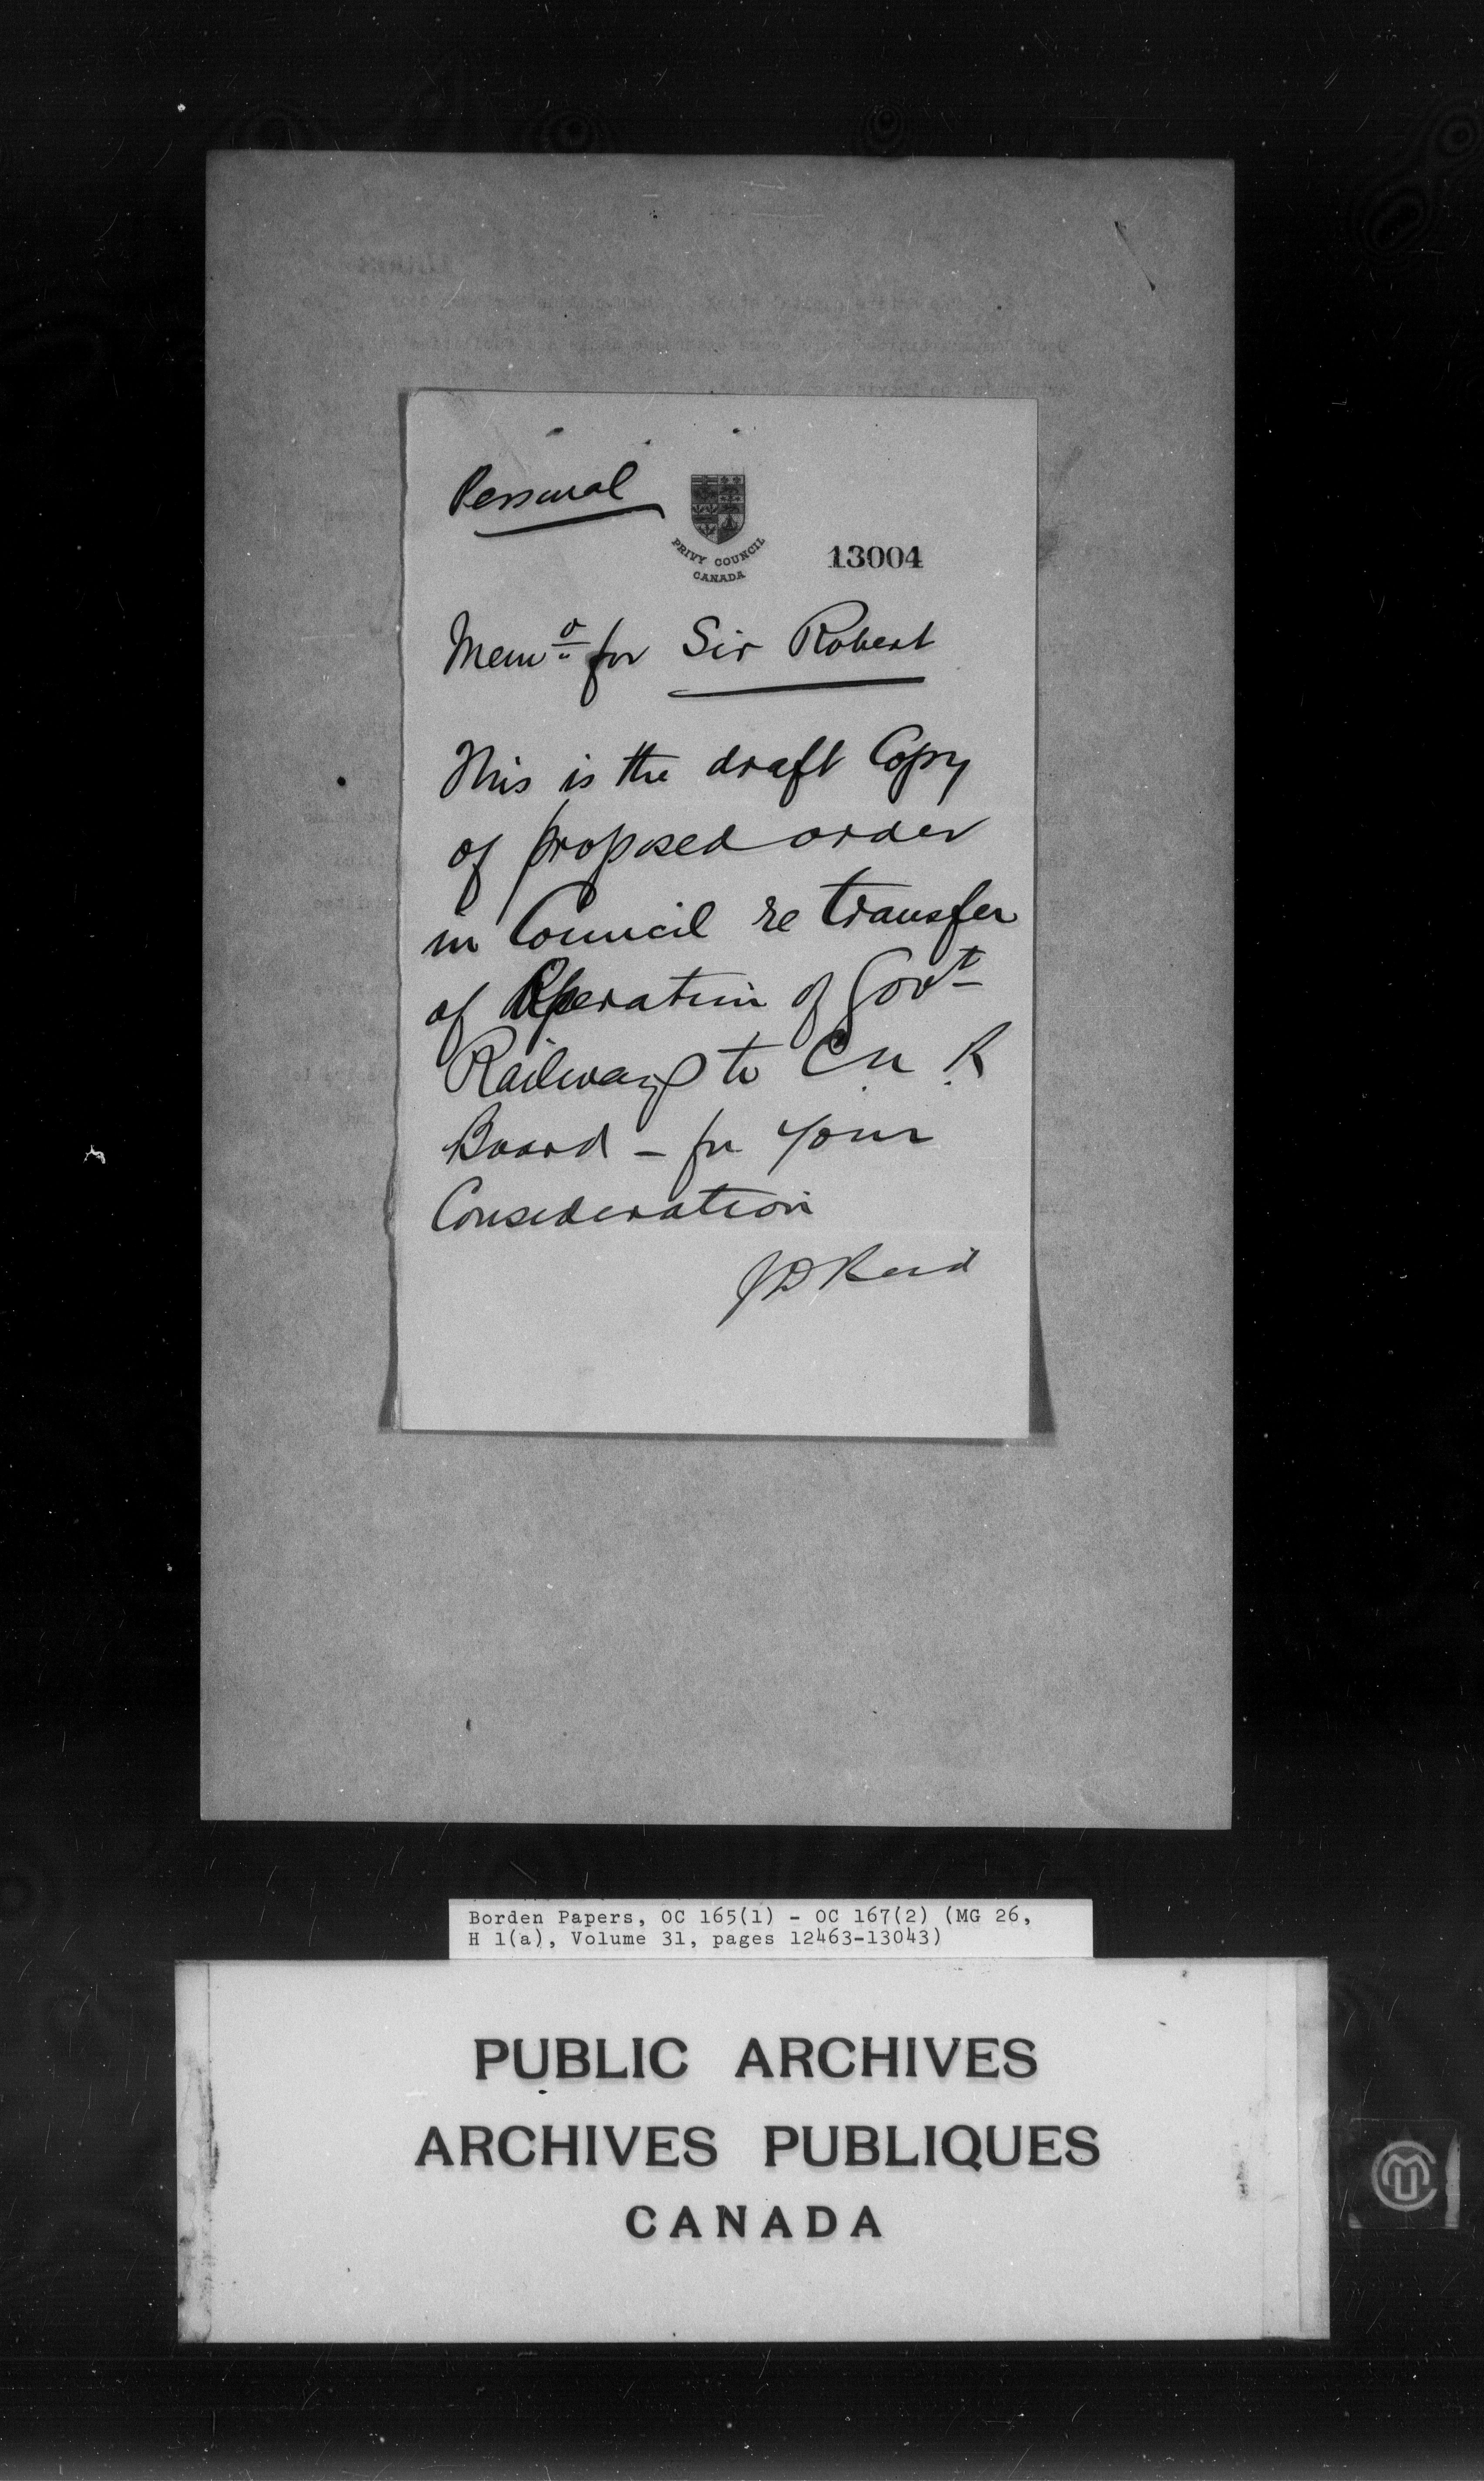 Personal
PRIVY COUNCIL
CANADA
13004
Memo for Sir Robert
This is the draft Copy
of proposed order
in Council re transfer
of Operation of Govt
Railways to C.N.R
Board - for your
Consideration
JD Reid
Borden Papers, OC 165(1) - OC 167(2) (MG 26,
H 1(a), Volume 31, pages 12463-13043)
PUBLIC ARCHIVES
ARCHIVES PUBLIQUES
CANADA